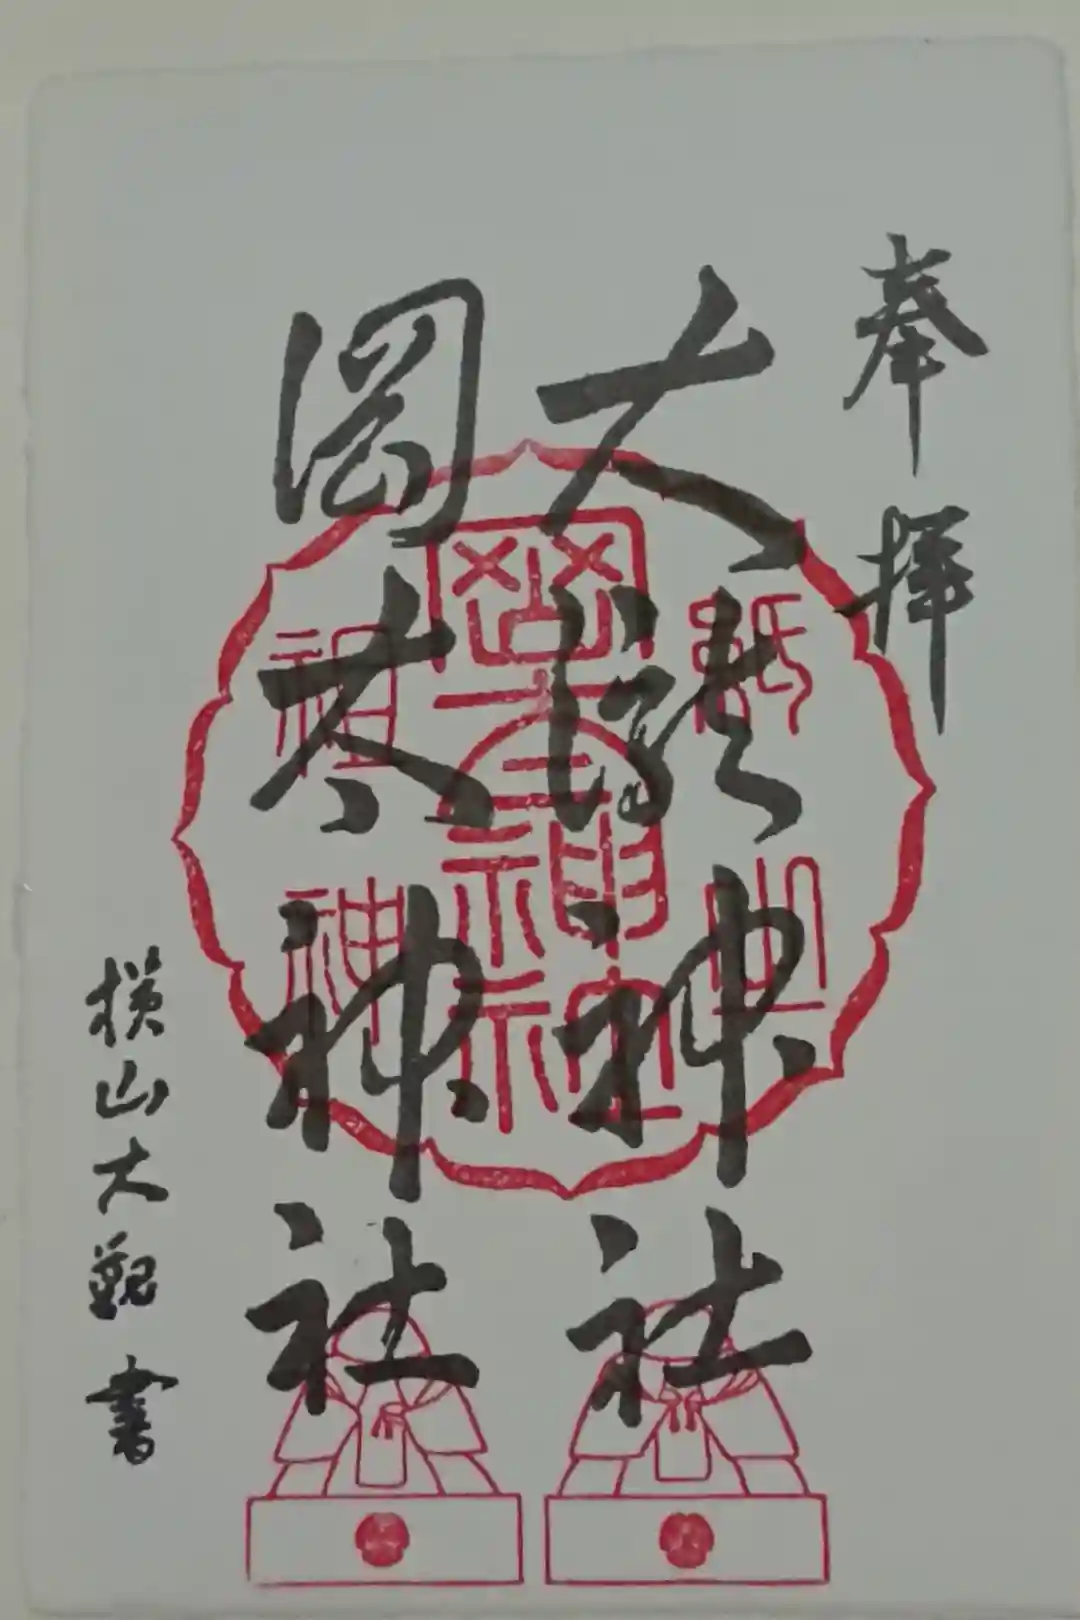 奉拝
大瀧神社
岡太神社
横山大観書
紙祖神
岡太
神社